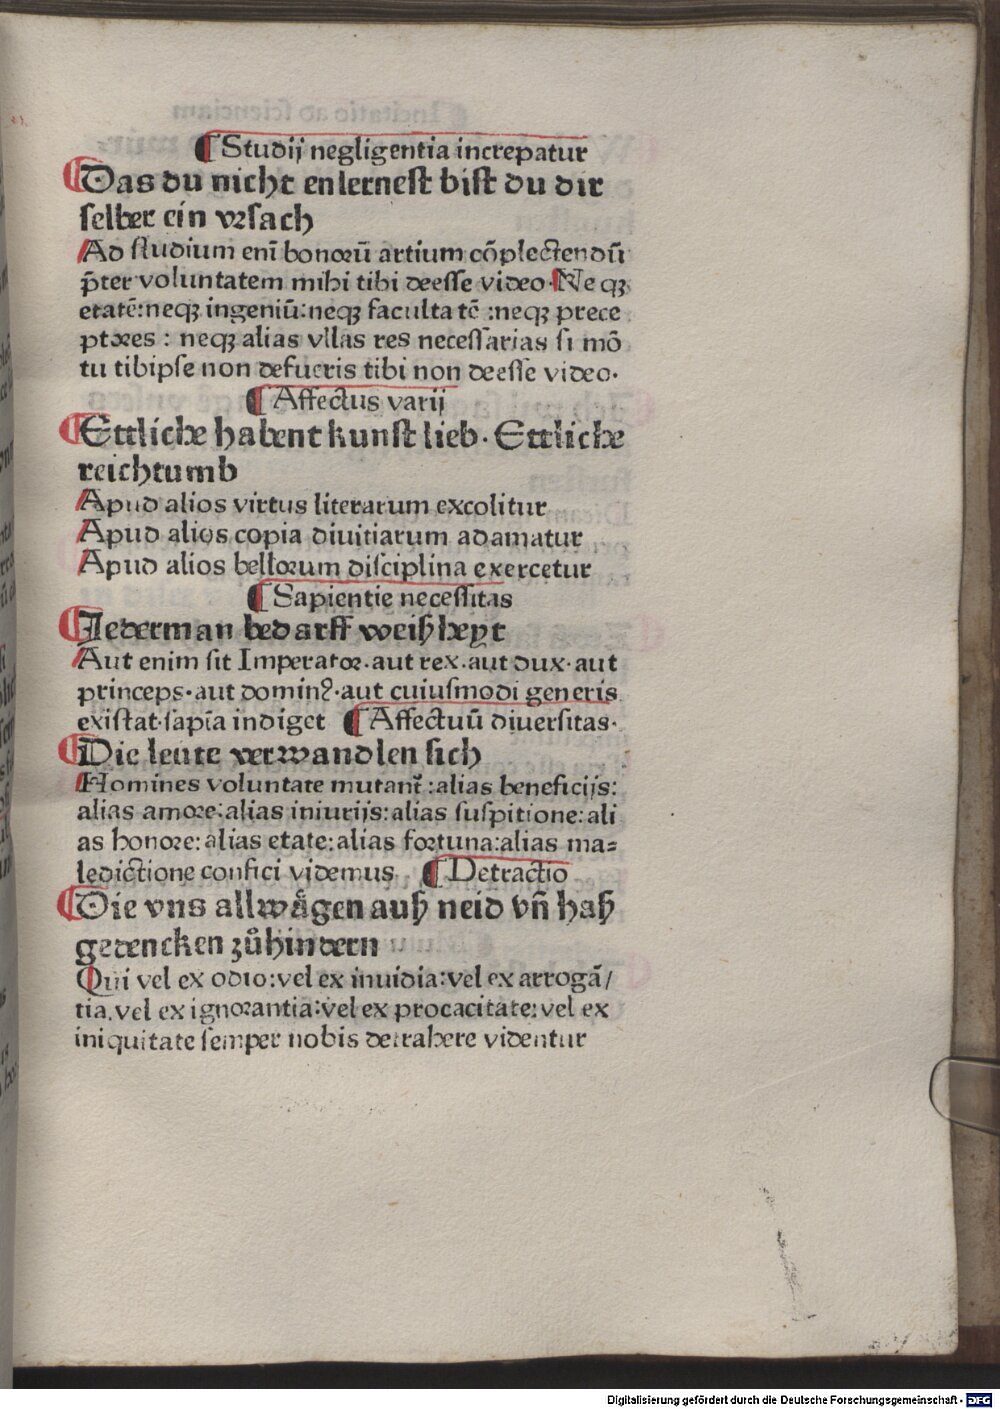 ¶Studij negligentia increpatur
Das du nicht en lernest bist du dir
selber ein vrsach
Ad studium enī bonorū artium cōplectendū
p̄ter voluntatem mihi tibi deesse video. Neqꝫ
etatē: neqꝫ ingeniū: neqꝫ faculta tē : neqꝫ prece
ptores : neqꝫ alias vllas res necessarias si mō
tu tibipse non defueris tibi non deesse video.
¶Affectus varij
Ettliche habent kunst lieb. Ettliche
reichtumb
Apud alios virtus literarum excolitur
Apud alios copia diuitiarum adamatur
Apud alios bellorum disciplina exercetur
¶Sapientie necessitas
Jederman bedarff weiszheyt
Aut enim sit Imperator. aut rex. aut dux. aut
princeps. aut dominꝰ. aut cuiusmodi generis
existat. sapīa indiget ¶Affectuū diuersitas.
Die leute verwandlen sich
Homines voluntate mutant᷑ : alias beneficijs:
alias amore: alias iniurijs: alias suspitione: ali
as honore: alias etate: alias fortuna: alias ma⸗
ledictione confici videmus ¶Detractio
Die vns allwågen ausz neid vn̄ hasz
gedencken zůhindern
Qui vel ex odio: vel ex inuidia: vel ex arrogā/
tia. vel ex ignorantia: vel ex procacitate: vel ex
iniquitate semper nobis detrahere videntur
Digitalisierung gefördert durch die Deutsche Forschungsgemeinschaft - DFG